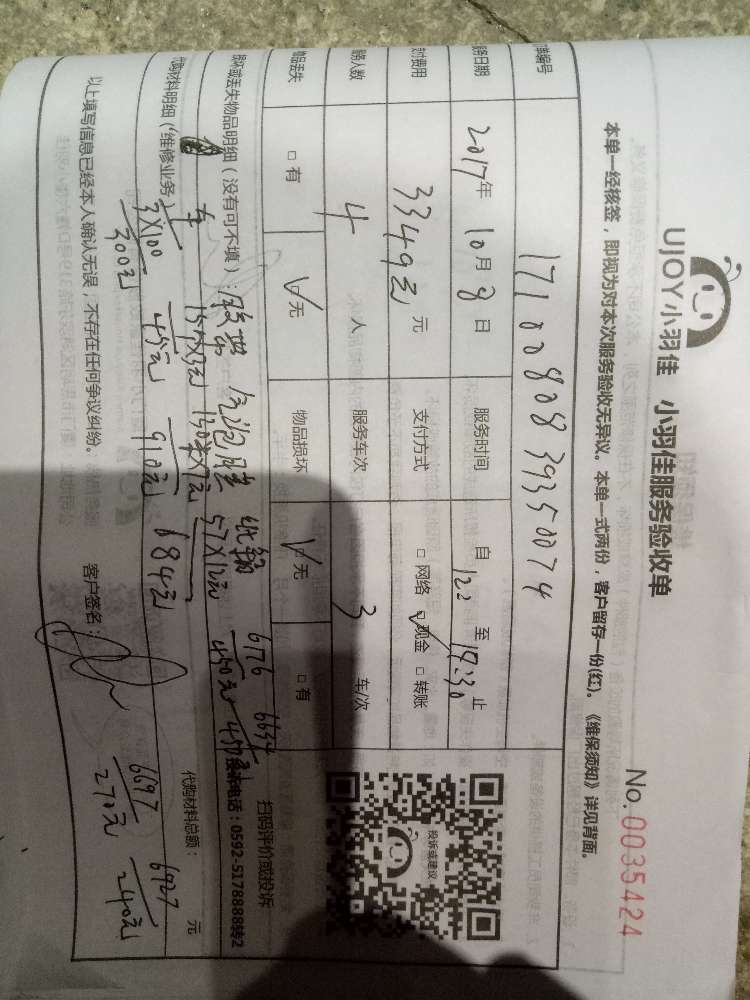 UJOY小羽佳 小羽佳服务验收单
No.0035424
本单一经核签,即视为对本次服务验收无异议。本单一式两份,客户留存一份(红)。《维保须知》详见背面。
单编号 1710080839350074
服务日期 2017年 10月 8日 服务时间 自 至 19:30 止
支付费用 3349元 元 支付方式 □网络 ☑现金 □转账
服务人数 4 人 服务车次 3 车/次
物品丢失 □有 ☑无 物品损坏 ☑无 □有
投诉或建议
扫码评价或投诉
电话:0592-5178888转2
损坏或丢失物品明细(没有可不填): 胶带 气泡膜 纸箱 6776 6634
车 15个X3元 130米X7元 57X12元 450元
代购材料明细(“维修业务”) 3X100 300元 45元 910元 684元
代购材料总额: 元
6697 6727
270元 240元
以上填写信息已经本人确认无误,不存在任何争议纠纷。 客户签名: